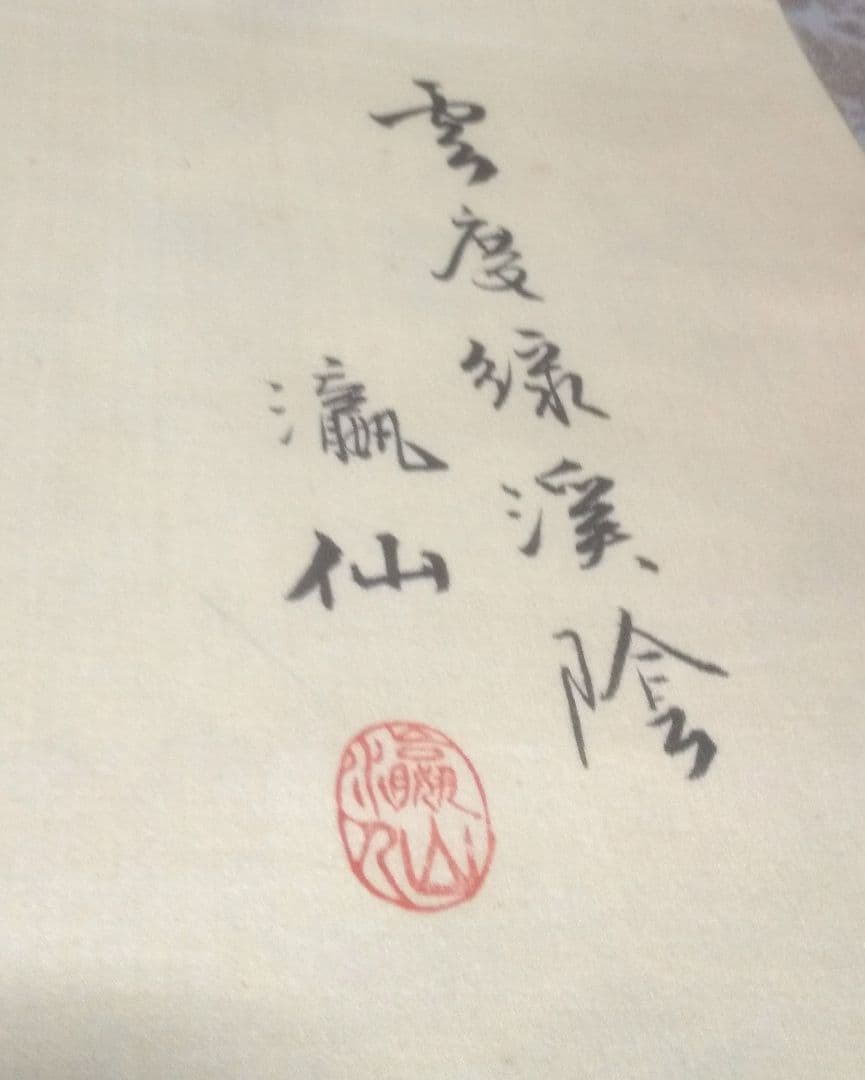 雲度緑溪陰
瀛仙
瀛仙